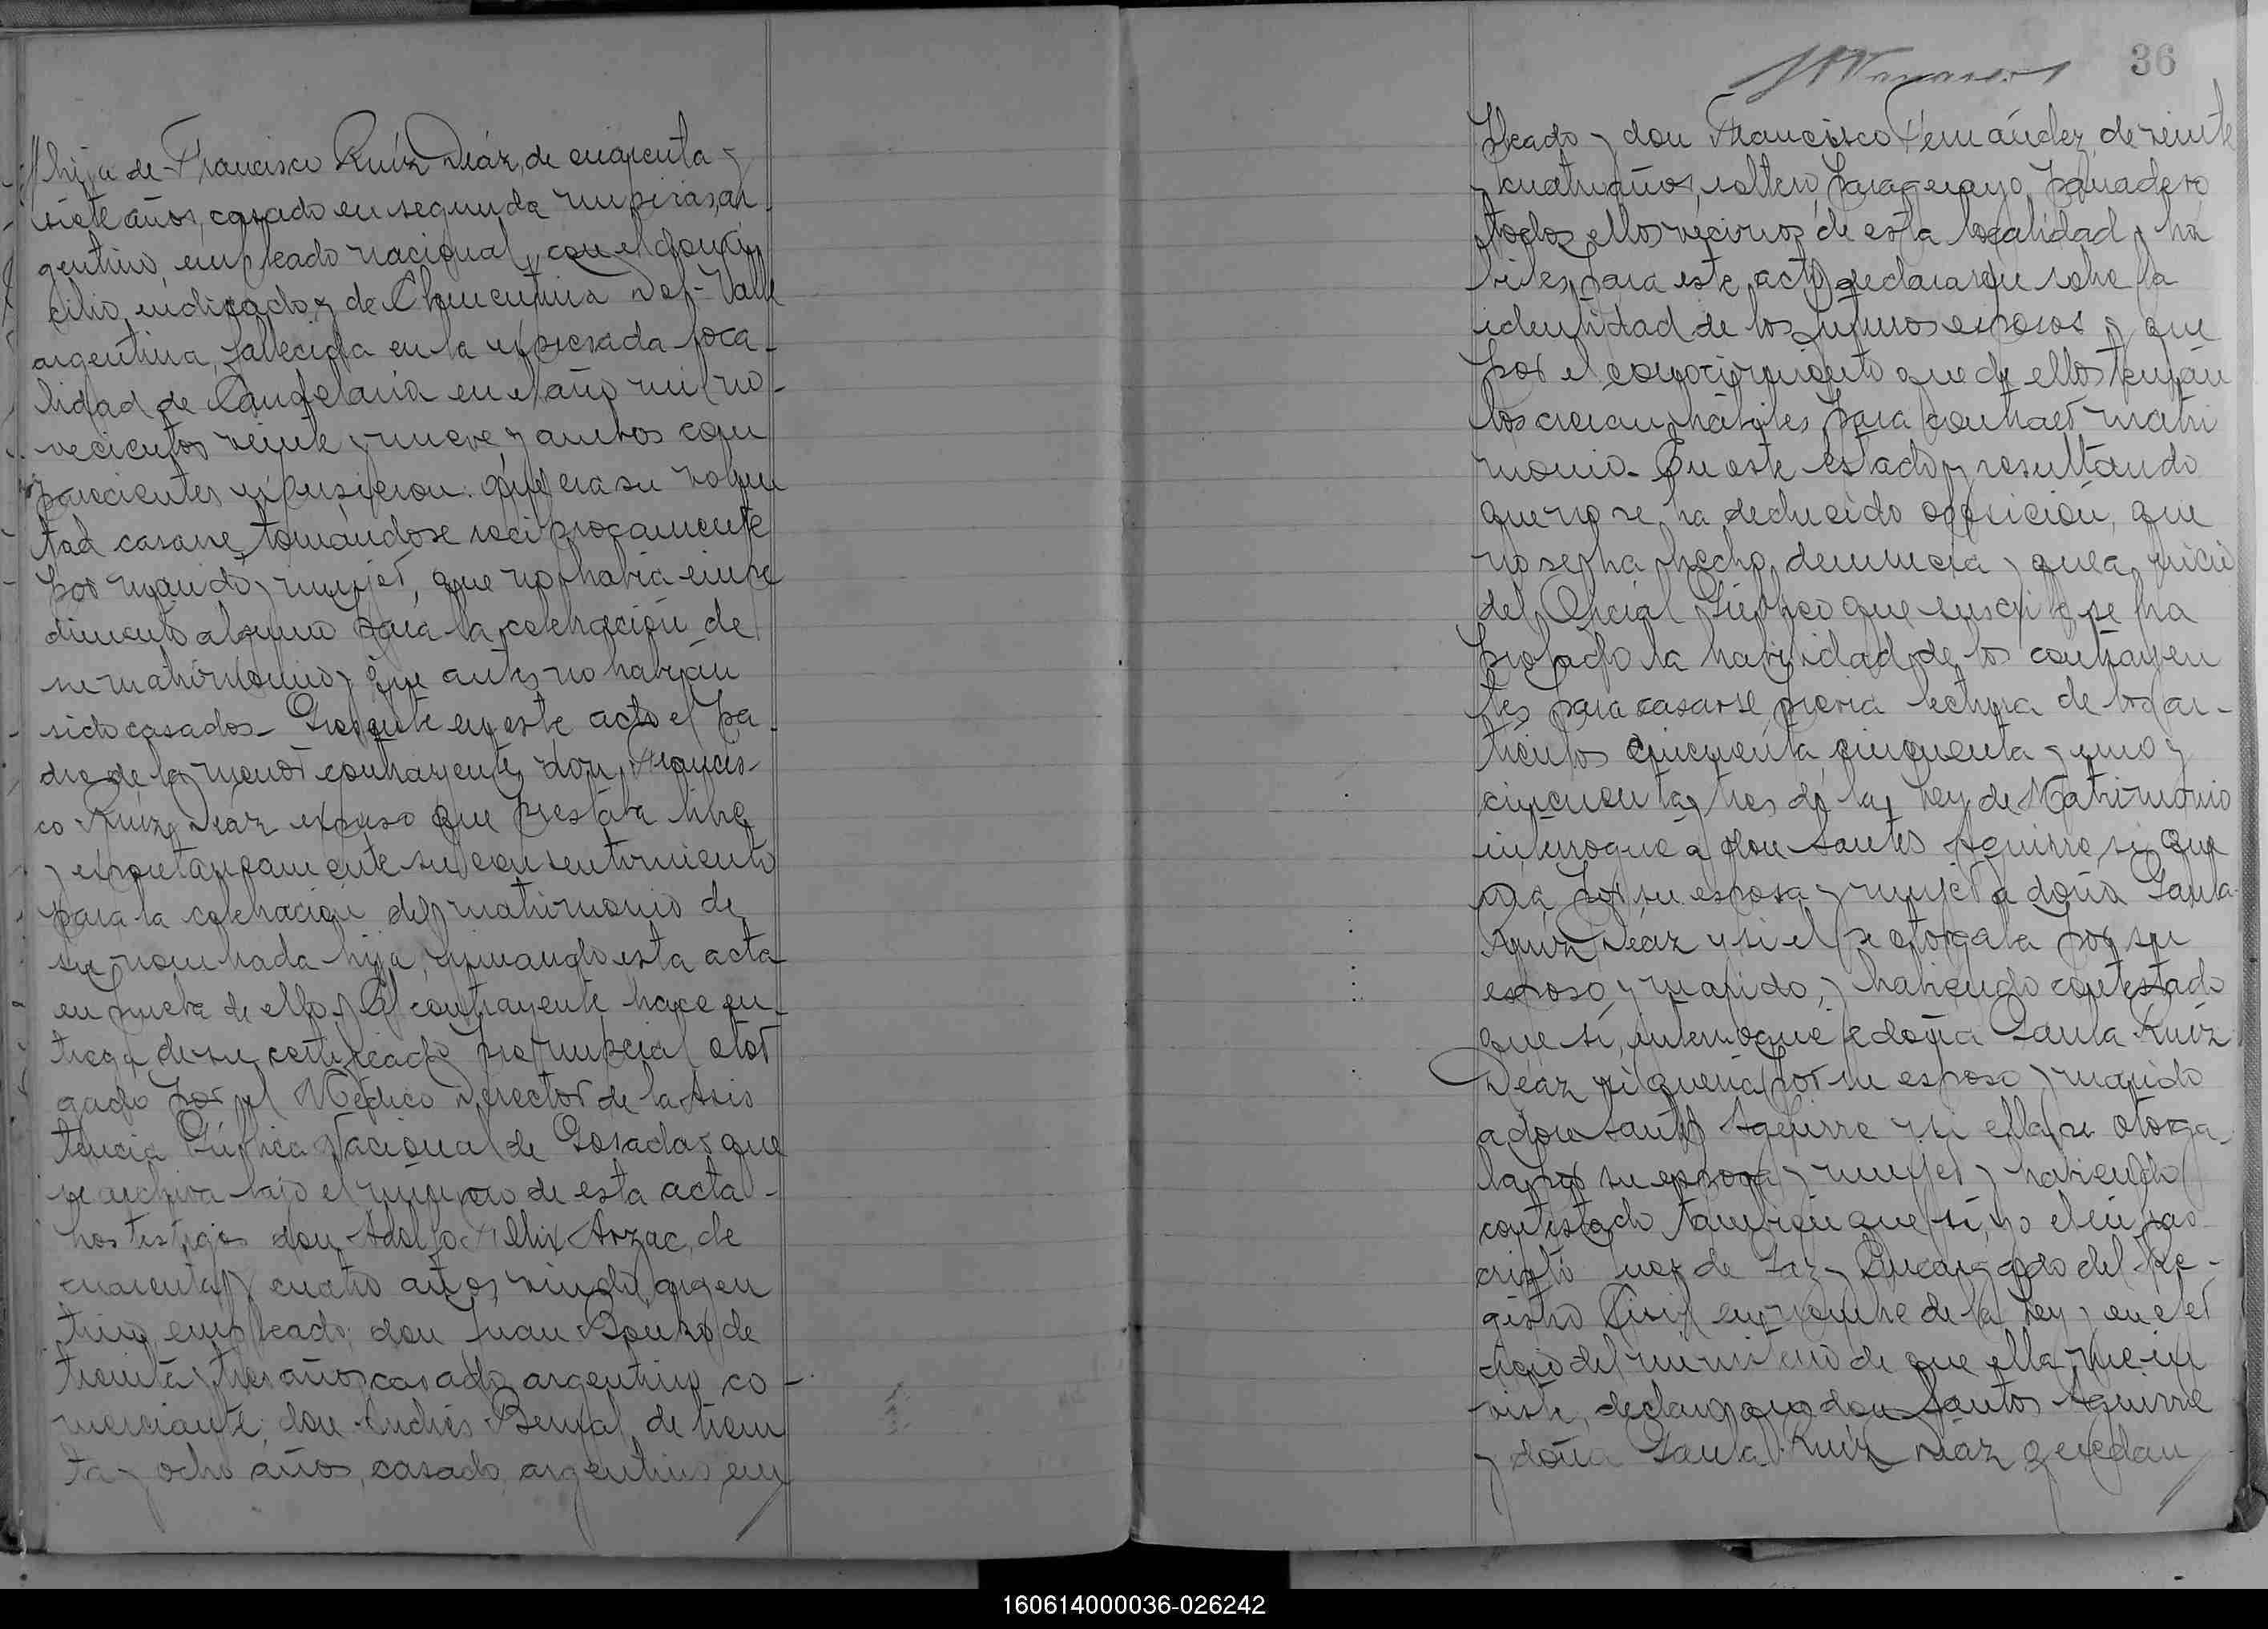 hija de Francisco Ruíz Díaz, de cuarenta y
siete años, casado en segunda nupcias, ar-
gentino, empleado nacional, con el domi-
cilio indicado y de Clementina Del-Valle
argentina, fallecida en la expresada loca-
lidad de Candelaria en el año mil no-
vecientos veinte y nueve y ambos com
parecientes expusieron: que era su volun
tad casarse, tomándose reciprocamente
por marido y mujer, que no había impe
dimento alguno para la celebración de
su matrimonio y que antes no habían
sido casados.- Presente en este acto el pa-
dre de la menor contrayente, don Francis-
co Ruíz Díaz expuso que prestaba libre
y espontaneamente su consentimiento
para la celebración del matrimonio de
su nombrada hija, firmando esta acta
en prueba de ello. y El contrayente hace en-
trega de su certificado prenupcial otor
gado por el Médico Director de la Asis
tencia Pública Nacional de Posadas que
se archiva bajo el número de esta acta-
Los testigos don Adolfo Arzac, de
cuarenta y cuatro años, viudo, argen
tino, empleado; don Juan de
treinta y tres años, casado, argentino, co-
merciante; don Andrés Bernal, de trein
ta y ocho años, casado, argentino, em
36
pleado y don Francisco Fernández, de veinte
y cuatro años, soltero, paraguayo, panadero
todos ellos vecinos de esta localidad y há
biles para este acto, declararon sobre la
identidad de los futuros esposos y que
por el conocimiento que de ellos tenían
los creían hábiles para contraer matri
monio.- En este estado y resultando
que no se ha deducido oposición, que
no se ha hecho denuncia y que a juicio
del Oficial Público que suscribe se ha
probado la habilidad de los contrayen
tes para casarse, previa lectura de los ar-
tículos cincuenta, cincuenta y uno y
cincuenta y tres de la Ley de Matrimonio
interrogué a don Santos Aguirre, si que
ría por su esposa y mujer a doña Paula
Ruíz Díaz y si el se otorgaba por su
esposo y marido, y habiendo contestado
que sí, interrogué a doña Paula Ruíz
Díaz si quería por su esposo y marido
a don Santos Aguirre y si ella se otorga-
ba por su esposa y mujer y habiendo
contestado tambien que sí, yo el infras-
cripto Juez de Paz y Encargado del Re-
gistro Civil en nombre de la Ley y en ejer
cicio del ministerio de que ella me in
viste, declaro que don Santos Aguirre
y doña Paula Ruíz Díaz quedan
160614000036-026242